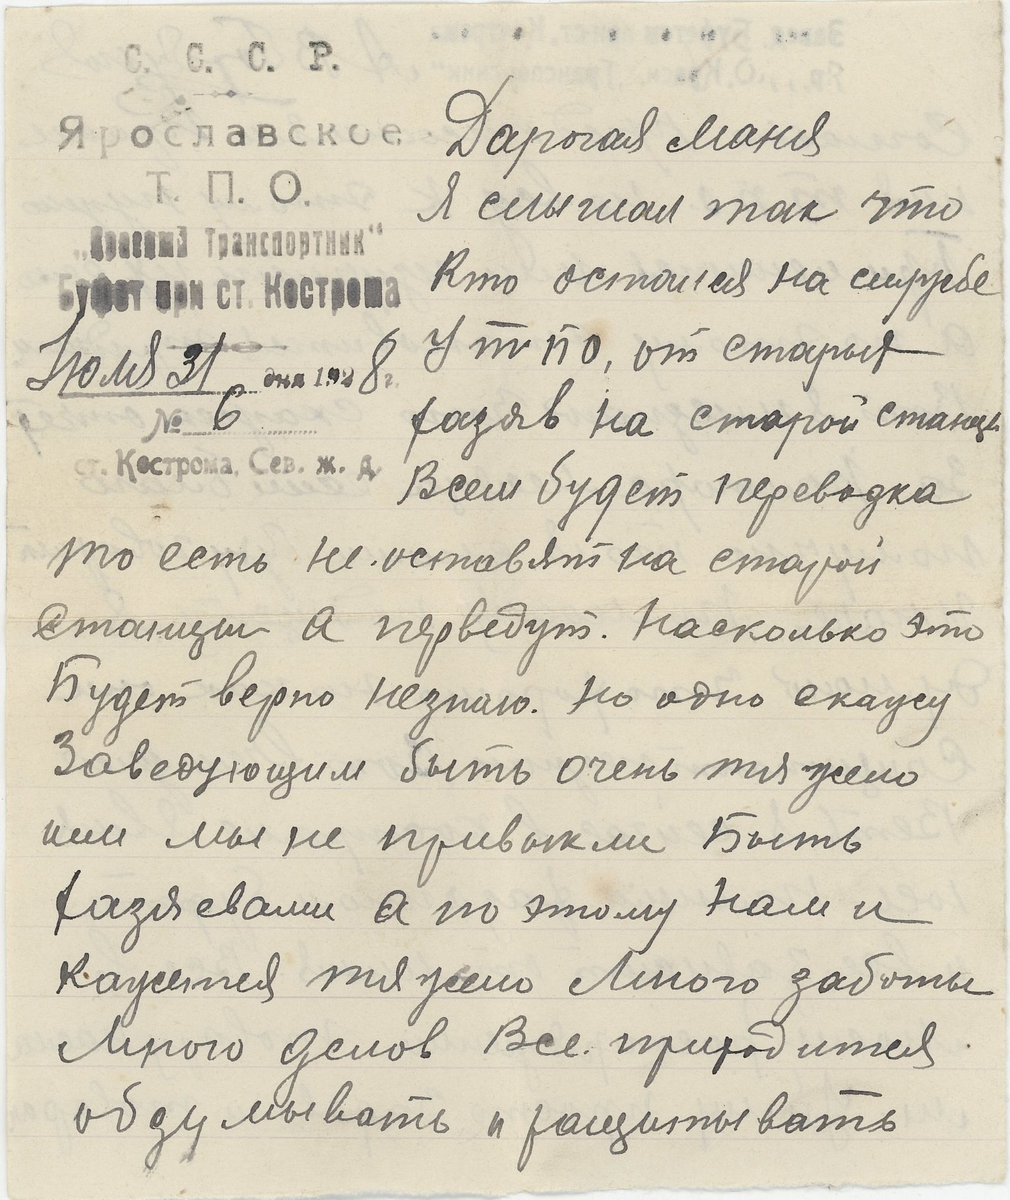 С. С. С. Р.
Ярославское
Т. П. О.
„Красный Транспортник"
Буфет при ст. Кострома
Июля 31 дня 1928 г.
№ 6
ст. Кострома, Сев. ж. д.
Дарогая Маня
Я слышал так что
Кто остался на службе
У т п о, от старых
хазяв на старой станцы
Всем будет переводка
то есть не оставят на старой
станцыи а первeдут. Насколько это
Будет верно незнаю. но одно скажу
Заведующим быть очень тяжело
или мы не привыкли Быть
хазяевами а по этому нам и
кажится тяжело Много заботы
Много делов Все. приходится
обдумывать и ращитывать